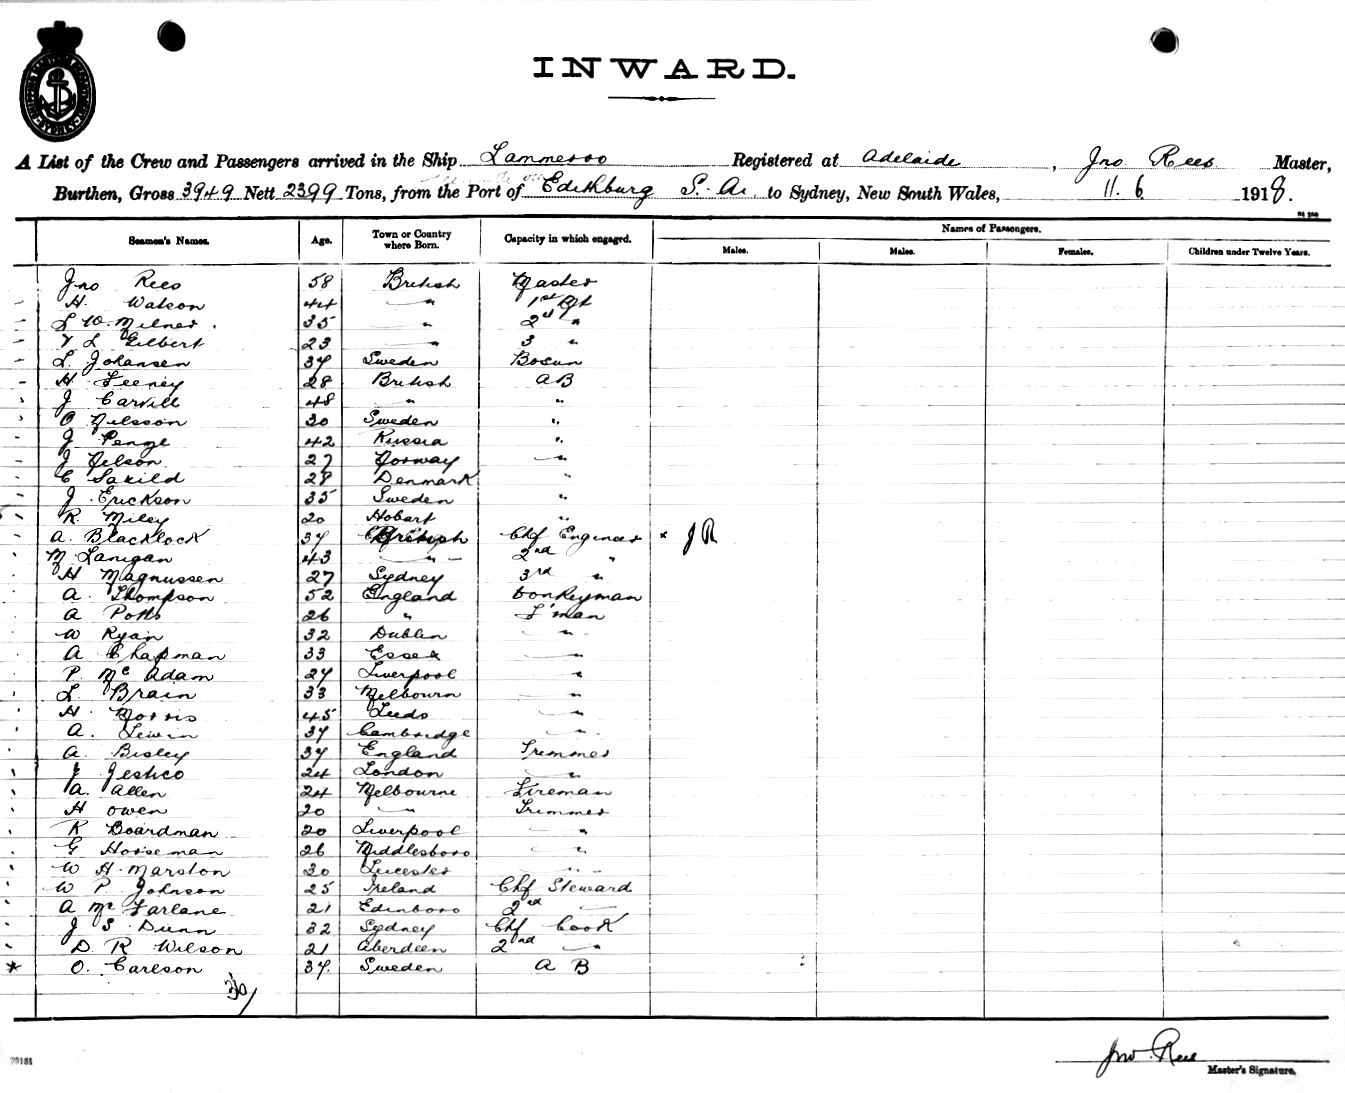 INWARD.
A List of the Crew and Passengers arrived in the Ship Lammeroo Registered at Adelaide, Jno Rees Master,
Burthen, Gross 3949 Nett 2399 Tons, from the Port of Edithburg S. A. to Sydney, New South Wales, 11. 6 1918.
Names of Passengers.
Seamen's Names. Age. Town or Country where Born. Capacity in which engaged. Males. Males. Females. Children under Twelve Years.
Jno Rees 58 British Master
H. Watson 44 " 1st Mt
L W. Milner. 35 " 2nd "
V L Gilbert 23 " 3 "
L. Johansen 37 Sweden Bosun
H Feeney 28 British AB
J Carvill 48 " "
O Nilsson 30 Sweden "
J Penge 42 Russia "
J Nilson 27 Norway "
C Saxild 28 Denmark "
J. Erickson 35 Sweden "
R. Miley 20 Hobart "
A. Blacklock 37 British Chf Engineer * J R
M Lanigan 43 " 2nd "
H Magnussen 27 Sydney 3rd "
A. Thompson 52 England Donkeyman
A Potts 26 " F'man
W Ryan 32 Dublin "
A Chapman 33 Essex "
P. Mc Adam 27 Liverpool "
L. Brain 33 Melbourn "
H. Norris 45 Leeds "
A. Lewin 37 Cambridge "
A. Bisley 37 England Trimmer
J Jestico 24 London "
A. Allen 24 Melbourne Fireman
H Owen 20 " Trimmer
R Boardman 20 Liverpool "
G Horseman 26 Middlesboro "
W H. Marston 20 Leicester "
W P. Johnson 25 Ireland Chf Steward
A Mc Farlane 21 Edinboro 2nd "
J S Dunn 32 Sydney Chf Cook
D. R Wilson 21 Aberdeen 2nd "
* O. Carlson 37. Sweden A B
36/
Jno Rees
Master's Signature.